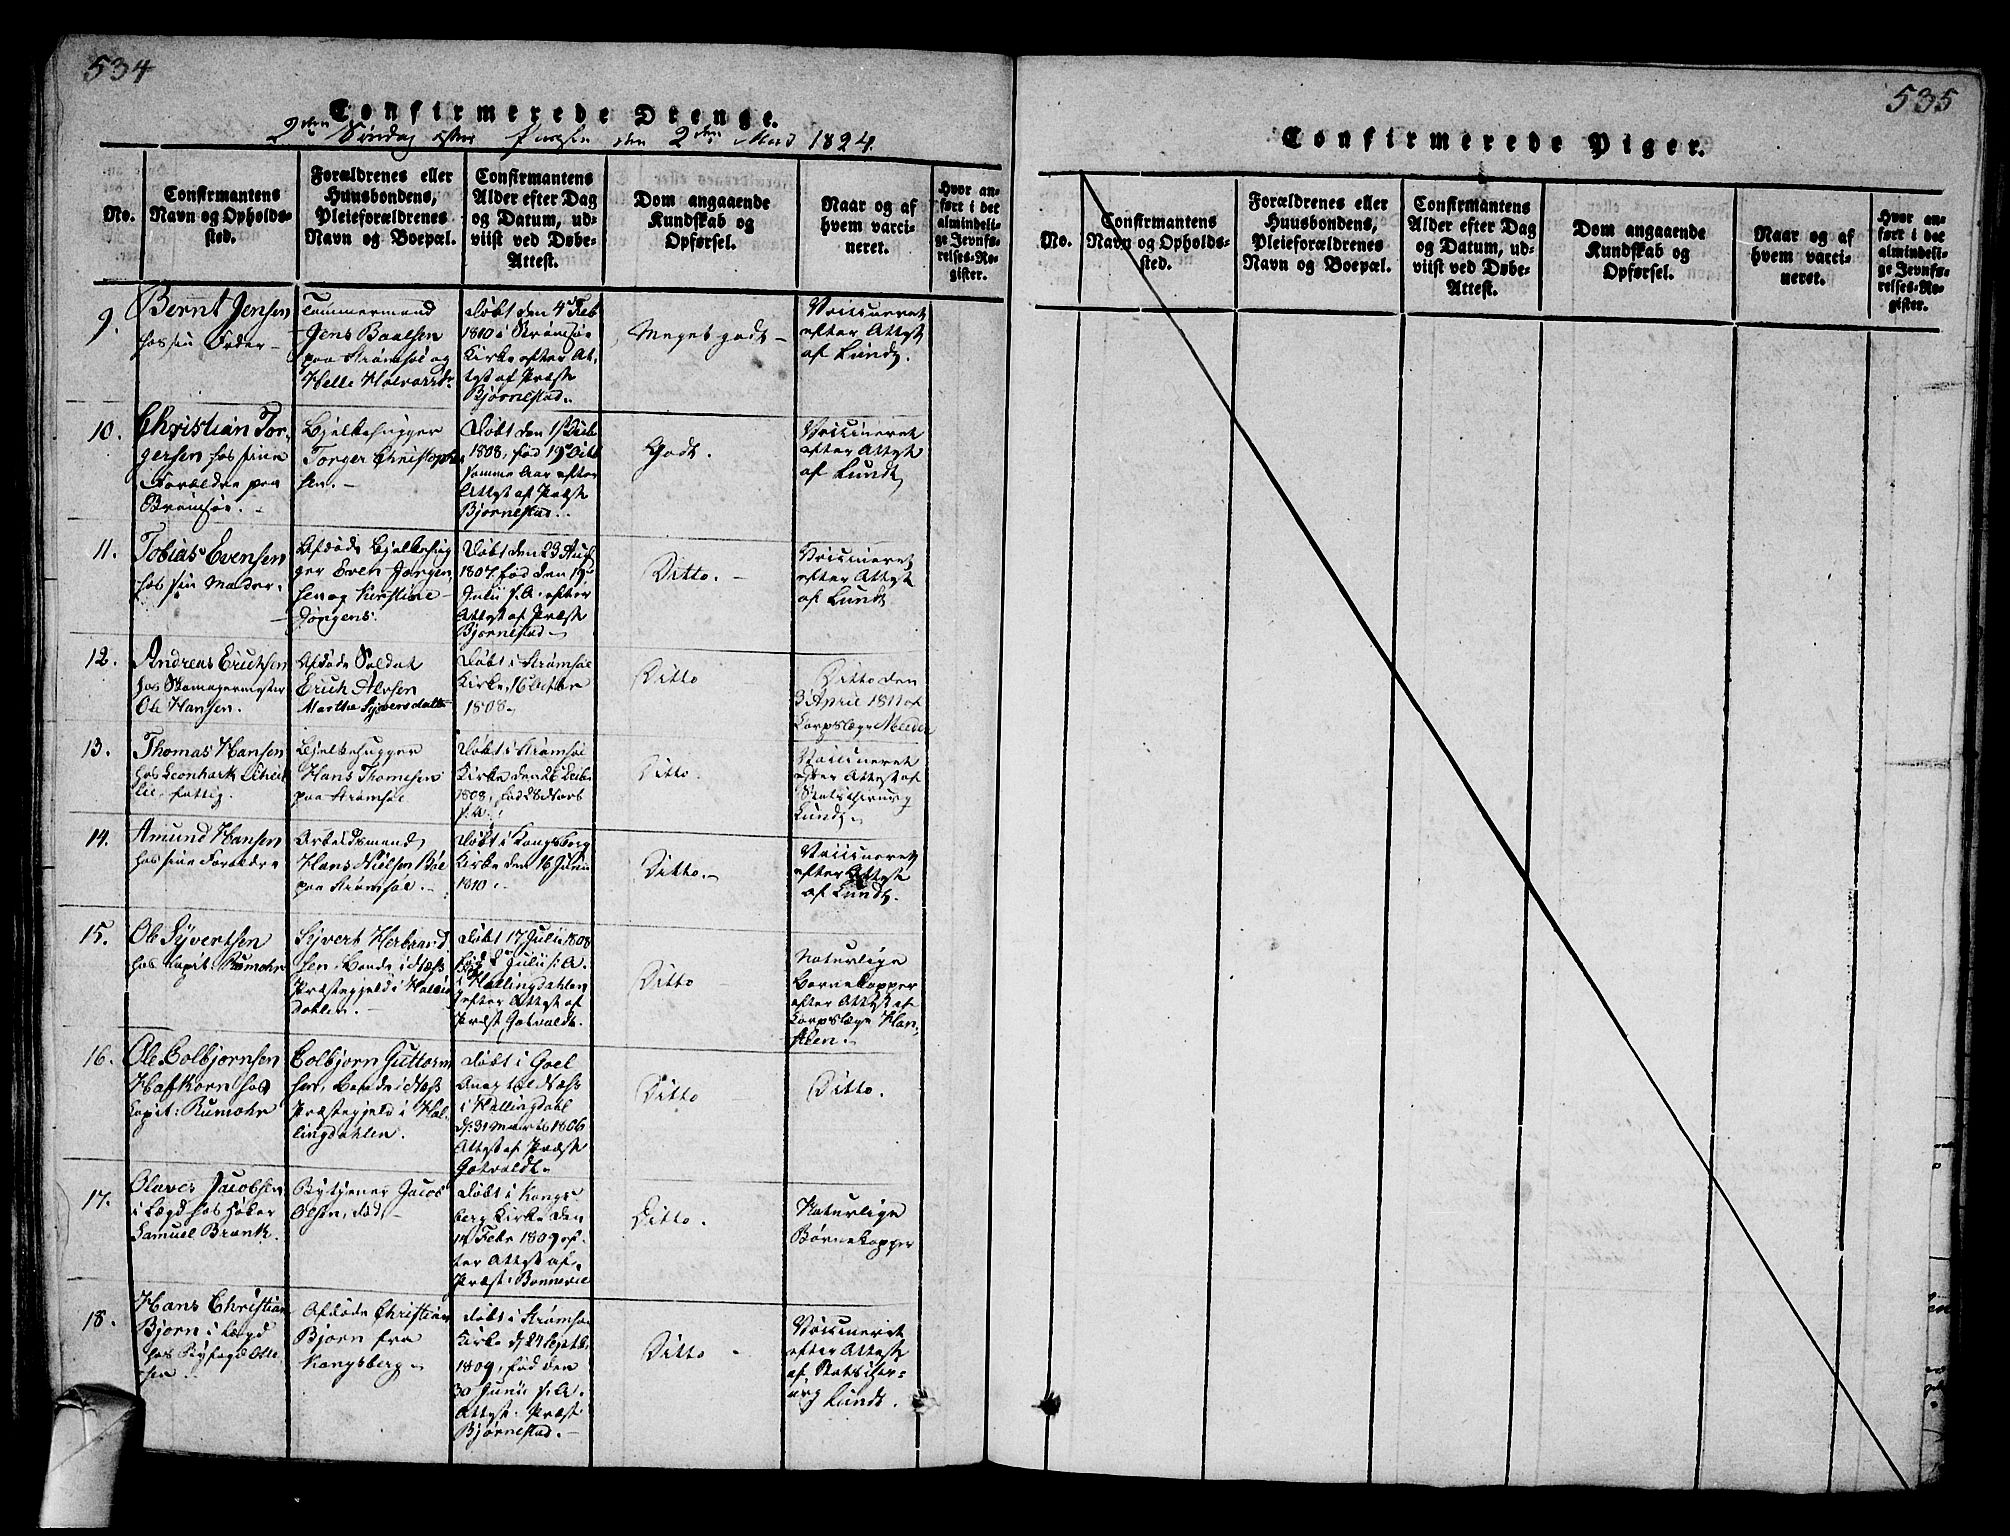 534
Confirmerede Drenge.
2den Søndag efter Paaske den 2den Mai 1824.
No.
Confirmantens
Navn og Opholds-
sted.
Forældrenes eller
Huusbondens,
Pleieforældrenes
Navn og Boepæl.
Confirmantens
Alder efter Dag
og Datum, ud-
viist ved Døbe-
Attest.
Dom angaaende
Kundskab og
Opførsel.
Naar og af
hvem vacci-
neret.
Hvor an-
ført i det
almindeli-
ge Jevnfø-
relses-Re-
gister.
9.
Bernt Jensen
hos sin Fader
Tømmermand
Jens Baalsen
paa Strømsøe og
Helle Halvorsdr
Døbt den 4 Feb
1810 i Strømsøe
Kirke efter At-
test af Præst
Bjørnestad.
Meget godt
Vaccineret
efter Attest
af Lundt.
10.
Christian Tor-
gersen hos sine
Forældre paa
Strømsøe.
Bjelkehugger
Torger Christophe
sen.
1808, fød 19
samme Aar efter
Attest af Præst
Bjørnestad.
Godt.
Vaccineret
efter Attest
af Lundt
11.
Tobias Evensen
hos sin Moder.
Afdøde Bjelkehug
ger Even Jørgen
sen og Kirstine
Jørgens:
Døbt den 23 Aug
1807, fød den 19
Julii s. A. efter
Attest af Præst
Bjørnestad
Ditto.
Vaccineret
efter Attest
af Lundt
12.
Andreas Erichsen
hos Skomagermester
Ole Hansen.
Afdøde Soldat
Erich
Martha Syversdatter
Døbt i Strømsøe
Kirke, 16 October
1808
Ditto
Ditto den
3 April 1811 af
Corpslæge
13.
Thomas Hansen
hos
lie, fattig.
Bjelkehugger
Hans Thomesen
paa Strømsøe
Døbt i Strømsøe
Kirke den 26
1808, fød 28
s. A.
Ditto.
Vaccineret
efter Attest af
Statschirurg
Lundt
14.
Amund Hansen
hos sine Forældre
Arbeidsmand
Hans Nielsen Bøe
paa Strømsøe.
Døbt i Kongsberg
Kirke den 16 Junii
1810.
Ditto.
Vaccineret
efter Attest
af Lundt.
15.
Ole Syvertsen
hos Capit: Rumohr
Syvert Herbrand
sen, Bonde i Næss
Præstegjeld i Halling
dahlen.
Døbt 17 Julii 1808
fød 2 Julii s: A.
i Hallingdahlen
efter Attest af
Præst Gotvaldt.
Ditto
Naturlige
Børnekopper
efter Attest af
Corpslæge Han-
sen.
16.
Ole Colbjørnsen
Hafkorn hos
Capit: Rumohr
Colbjørn Guttorm
sen, Bonde i Næss
Præstegjeld i Hal-
lingdahlen.
Døbt i Goel
Anex til Næss
i Hallingdahl
d: 31 Marts 1806
Attest af Præst
Gotvaldt
Ditto
Ditto.
17.
Olaves Jacobsen
i Lægd hos
Samuel Brænk.
Jacob
Olsen, død
Døbt i Kongs
berg Kirke den
14 Febr 1809 ef-
ter Attest af
Præst: Bonnevie
Ditto.
Naturlige
Børnekopper
18.
Hans Christian
Bjørn i Lægd
hos Byfoged Otte-
sen
Afdøde Christian
Bjørn fra
Kongsberg
Døbt i Strømsøe
Kirke d, 24 Septb.
1809, fød den
30 Junii s. A.
Attest. Præst
Bjørnestad.
Ditto
Vaccineret
efter Attest
af Statschir-
urg Lundt.
535
Confirmerede Piger.
No.
Confirmantens
Navn og Opholds-
sted.
Forældrenes eller
Huusbondens,
Pleieforældrenes
Navn og Boepæl.
Confirmantens
Alder efter Dag
og Datum, ud-
viist ved Døbe-
Attest.
Dom angaaende
Kundskab og
Opførsel.
Naar og af
hvem vacci-
neret.
Hvor an-
ført i det
almindeli-
ge Jevnfø-
relses-Re-
gister.